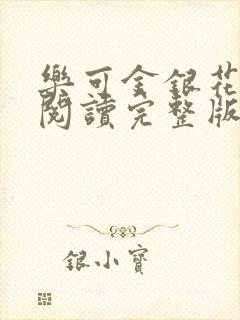 樂可金銀花
閱讀完整版
銀小寶